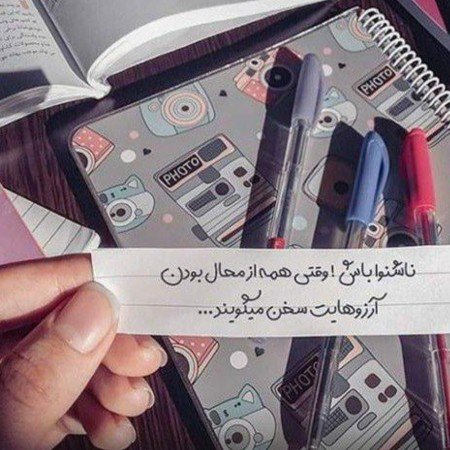 PHOTO
PHOTO
ناشنوا باش ! وقتی همه از محال بودن
آرزوهایت سخن میگویند...
PHOTO